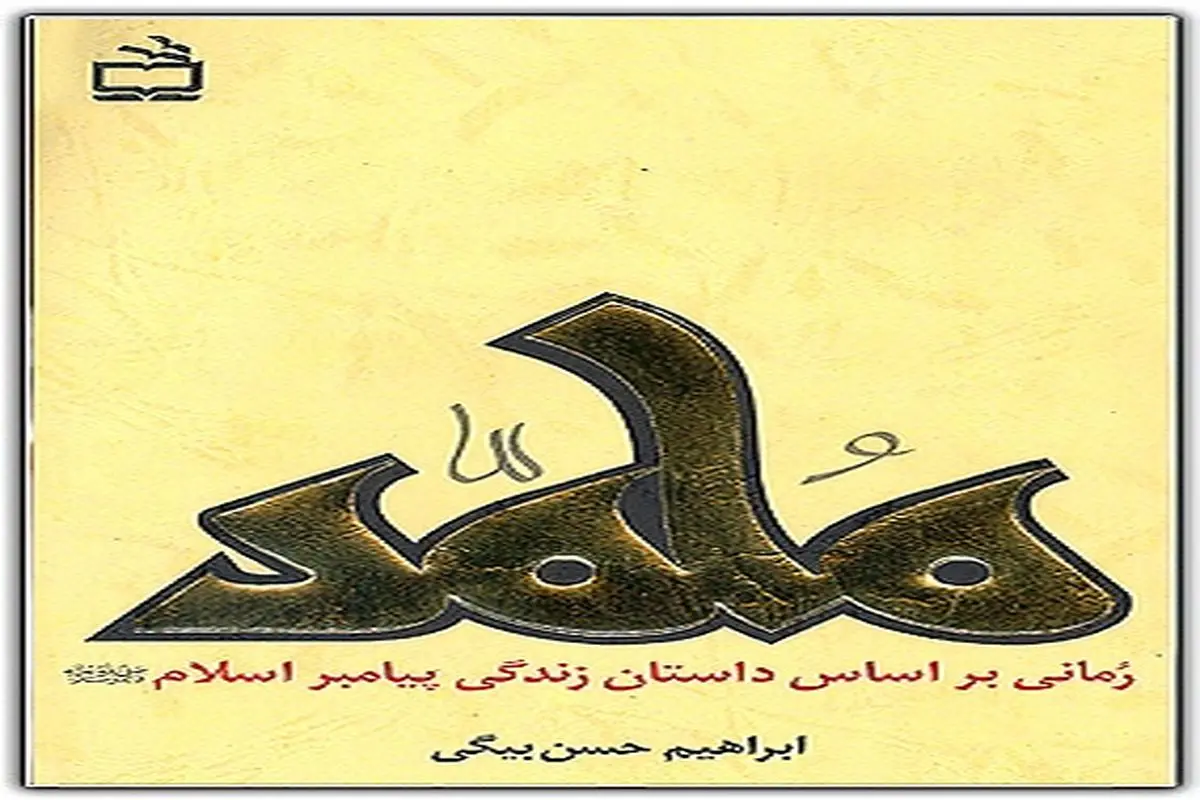 مُحمّد
رُمانی بر اساس داستان زندگی پیامبر اسلام
ابراهیم حسن‌بیگی